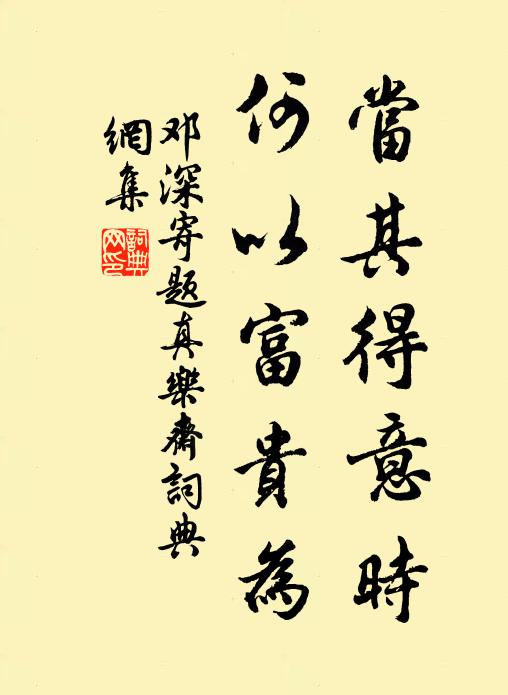 當其得意時
何以富貴為
邓深寄題真樂齋詞典
網集
詞典網印